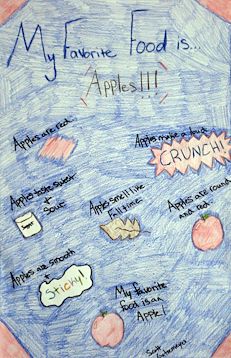 My Favorite Food is...
Apples!!!
Apples are red.
Apples make a loud
CRUNCH!
Apples taste sweet
+
Sour
Sugar
Apples smell like
Falltime.
Apples are round
and red.
Apples are smooth
Sticky!
My favorite
food is an
Apple!